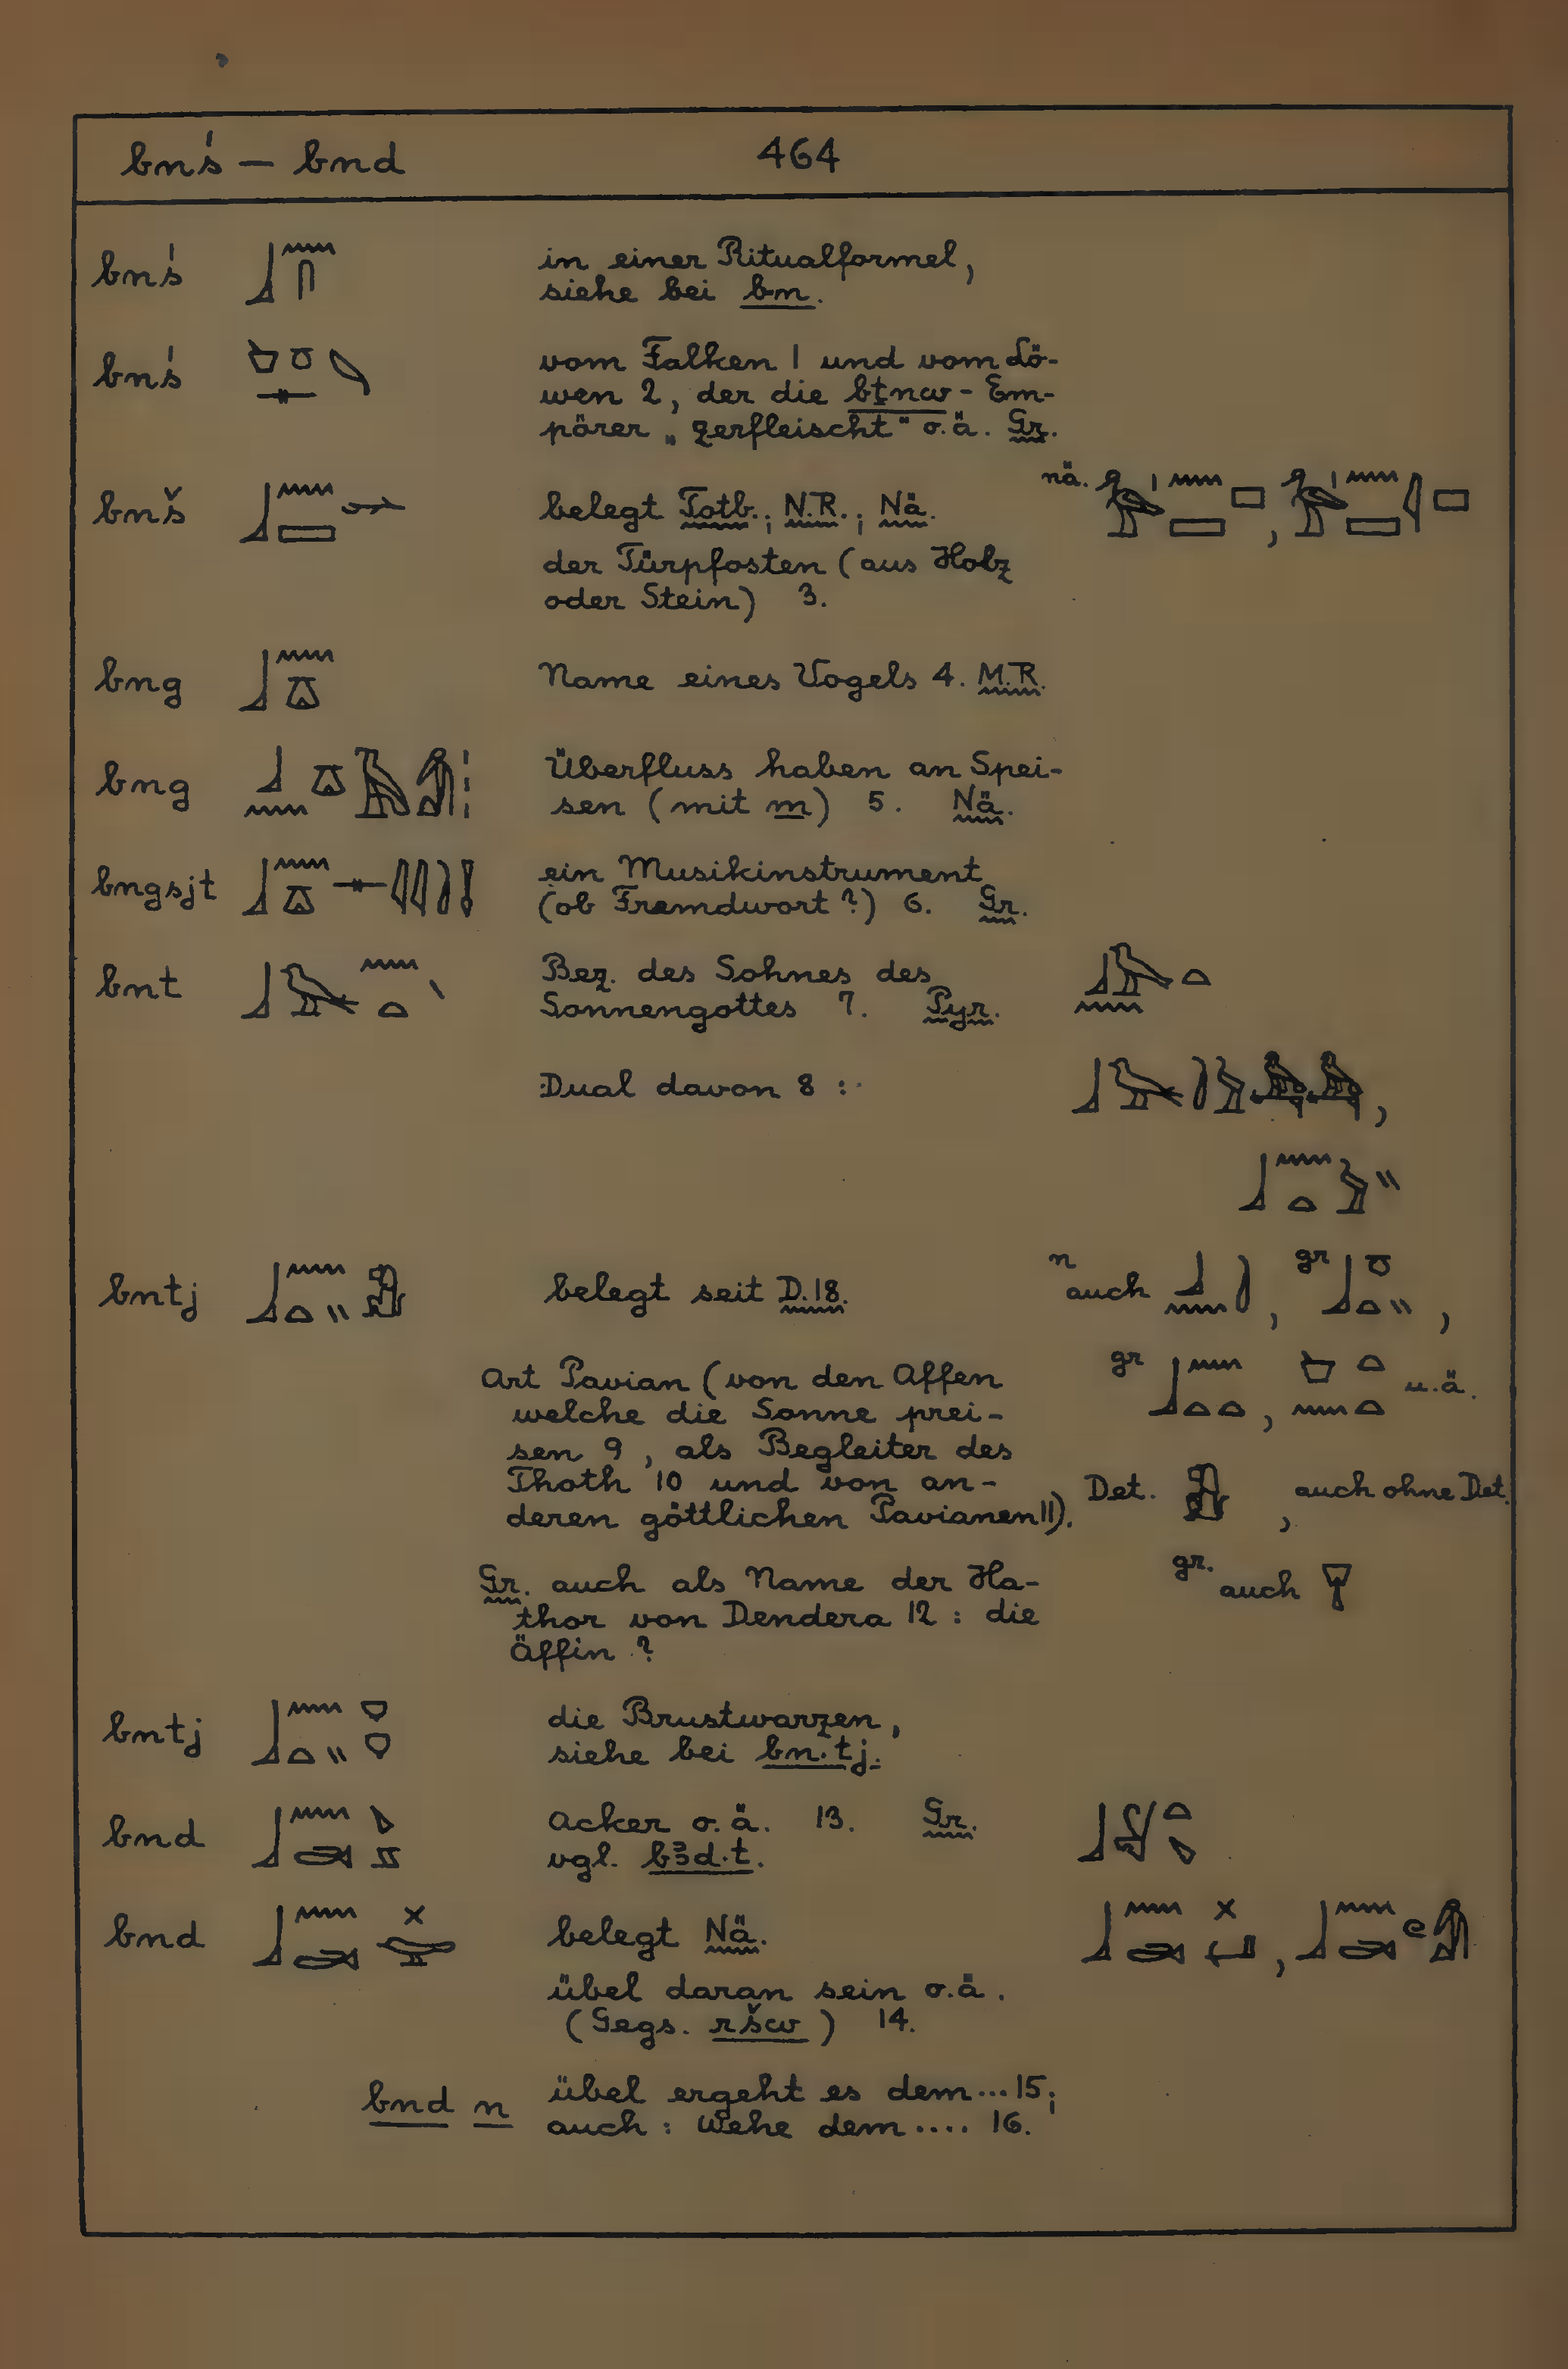 bnś — bnd 464
bnś in einer Ritualformel,
siehe bei bn.
bnś vom Falken 1 und vom Lö-
wen 2, der die bṯnw - Em-
pörer „zerfleischt" o.ä. Gr.
bnš belegt Totb.; N.R.; Nä. nä.
der Türpfosten (aus Holz
oder Stein) 3.
bng Name eines Vogels 4. M.R.
bng Überfluss haben an Spei-
sen (mit m) 5. Nä.
bngsjt ein Musikinstrument
(ob Fremdwort?) 6. Gr.
bnt Bez. des Sohnes des
Sonnengottes 7. Pyr.
Dual davon 8 :
bntj belegt seit D.18. n auch , gr ,
Art Pavian (von den Affen gr , u.ä.
welche die Sonne prei-
sen 9, als Begleiter des
Thoth 10 und von an- Det. , auch ohne Det.
deren göttlichen Pavianen 11).
Gr. auch als Name der Ha- gr. auch
thor von Dendera 12 : die
Äffin ?
bntj die Brustwarzen,
siehe bei bn.tj.
bnd Acker o.ä. 13. Gr.
vgl. bꜣd.t.
bnd belegt Nä.
übel daran sein o.ä.
(Gegs. ršw) 14.
bnd n übel ergeht es dem... 15;
auch : Wehe dem.... 16.